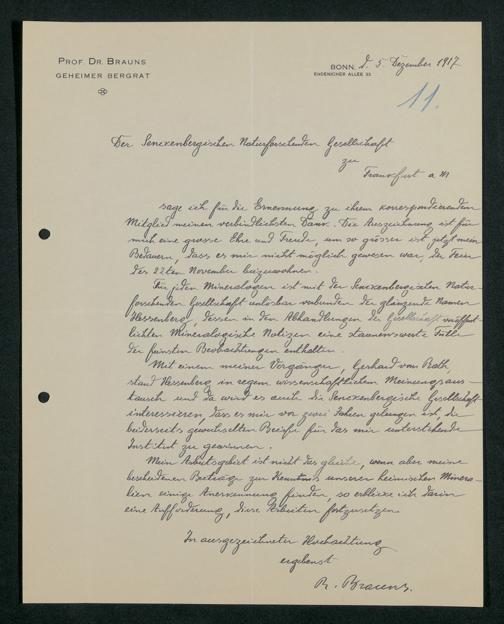 PROF. DR. BRAUNS
GEHEIMER BERGRAT
BONN, d. 5. Dezember 1917
ENDENICHER ALLEE 32
11.
Der Senckenbergischen Naturforschenden Gesellschaft
zu
Frankfurt a M
sage ich für die Ernennung zu ihrem korrespondierenden
Mitglied meinen verbindlichsten Dank. Die Auszeichnung ist für
mich eine grosse Ehre und Freude, um so grösser ist jetzt mein
Bedauern, dass es mir nicht möglich gewesen war, der Feier
des 22ten November beizuwohnen.
Für jeden Mineralogen ist mit der Senckenbergischen Natur-
forschenden Gesellschaft unlösbar verbunden der glänzende Namen
Hessenberg, dessen in den Abhandlungen der Gesellschaft veröffent-
lichten Mineralogische Notizen eine staunenswerte Fülle
der feinsten Beobachtungen enthalten.
Mit einem meiner Vorgänger, Gerhard vom Rath,
stand Hessenberg in regem wissenschaftlichem Meinungsaus-
tausch und da wird es auch die Senckenbergische Gesellschaft
interessieren, dass es mir vor zwei Jahren gelungen ist, die
beiderseits gewechselten Briefe für das mir unterstehende
Institut zu gewinnen.
Mein Arbeitsgebiet ist nicht das gleiche, wenn aber meine
bescheidenen Beiträge zur Kenntnis unserer heimischen Minera-
lien einige Anerkennung finden, so erblicke ich darin
eine Aufforderung, diese Arbeiten fortzusetzen.
In ausgezeichneter Hochachtung
ergebenst
R. Brauns.